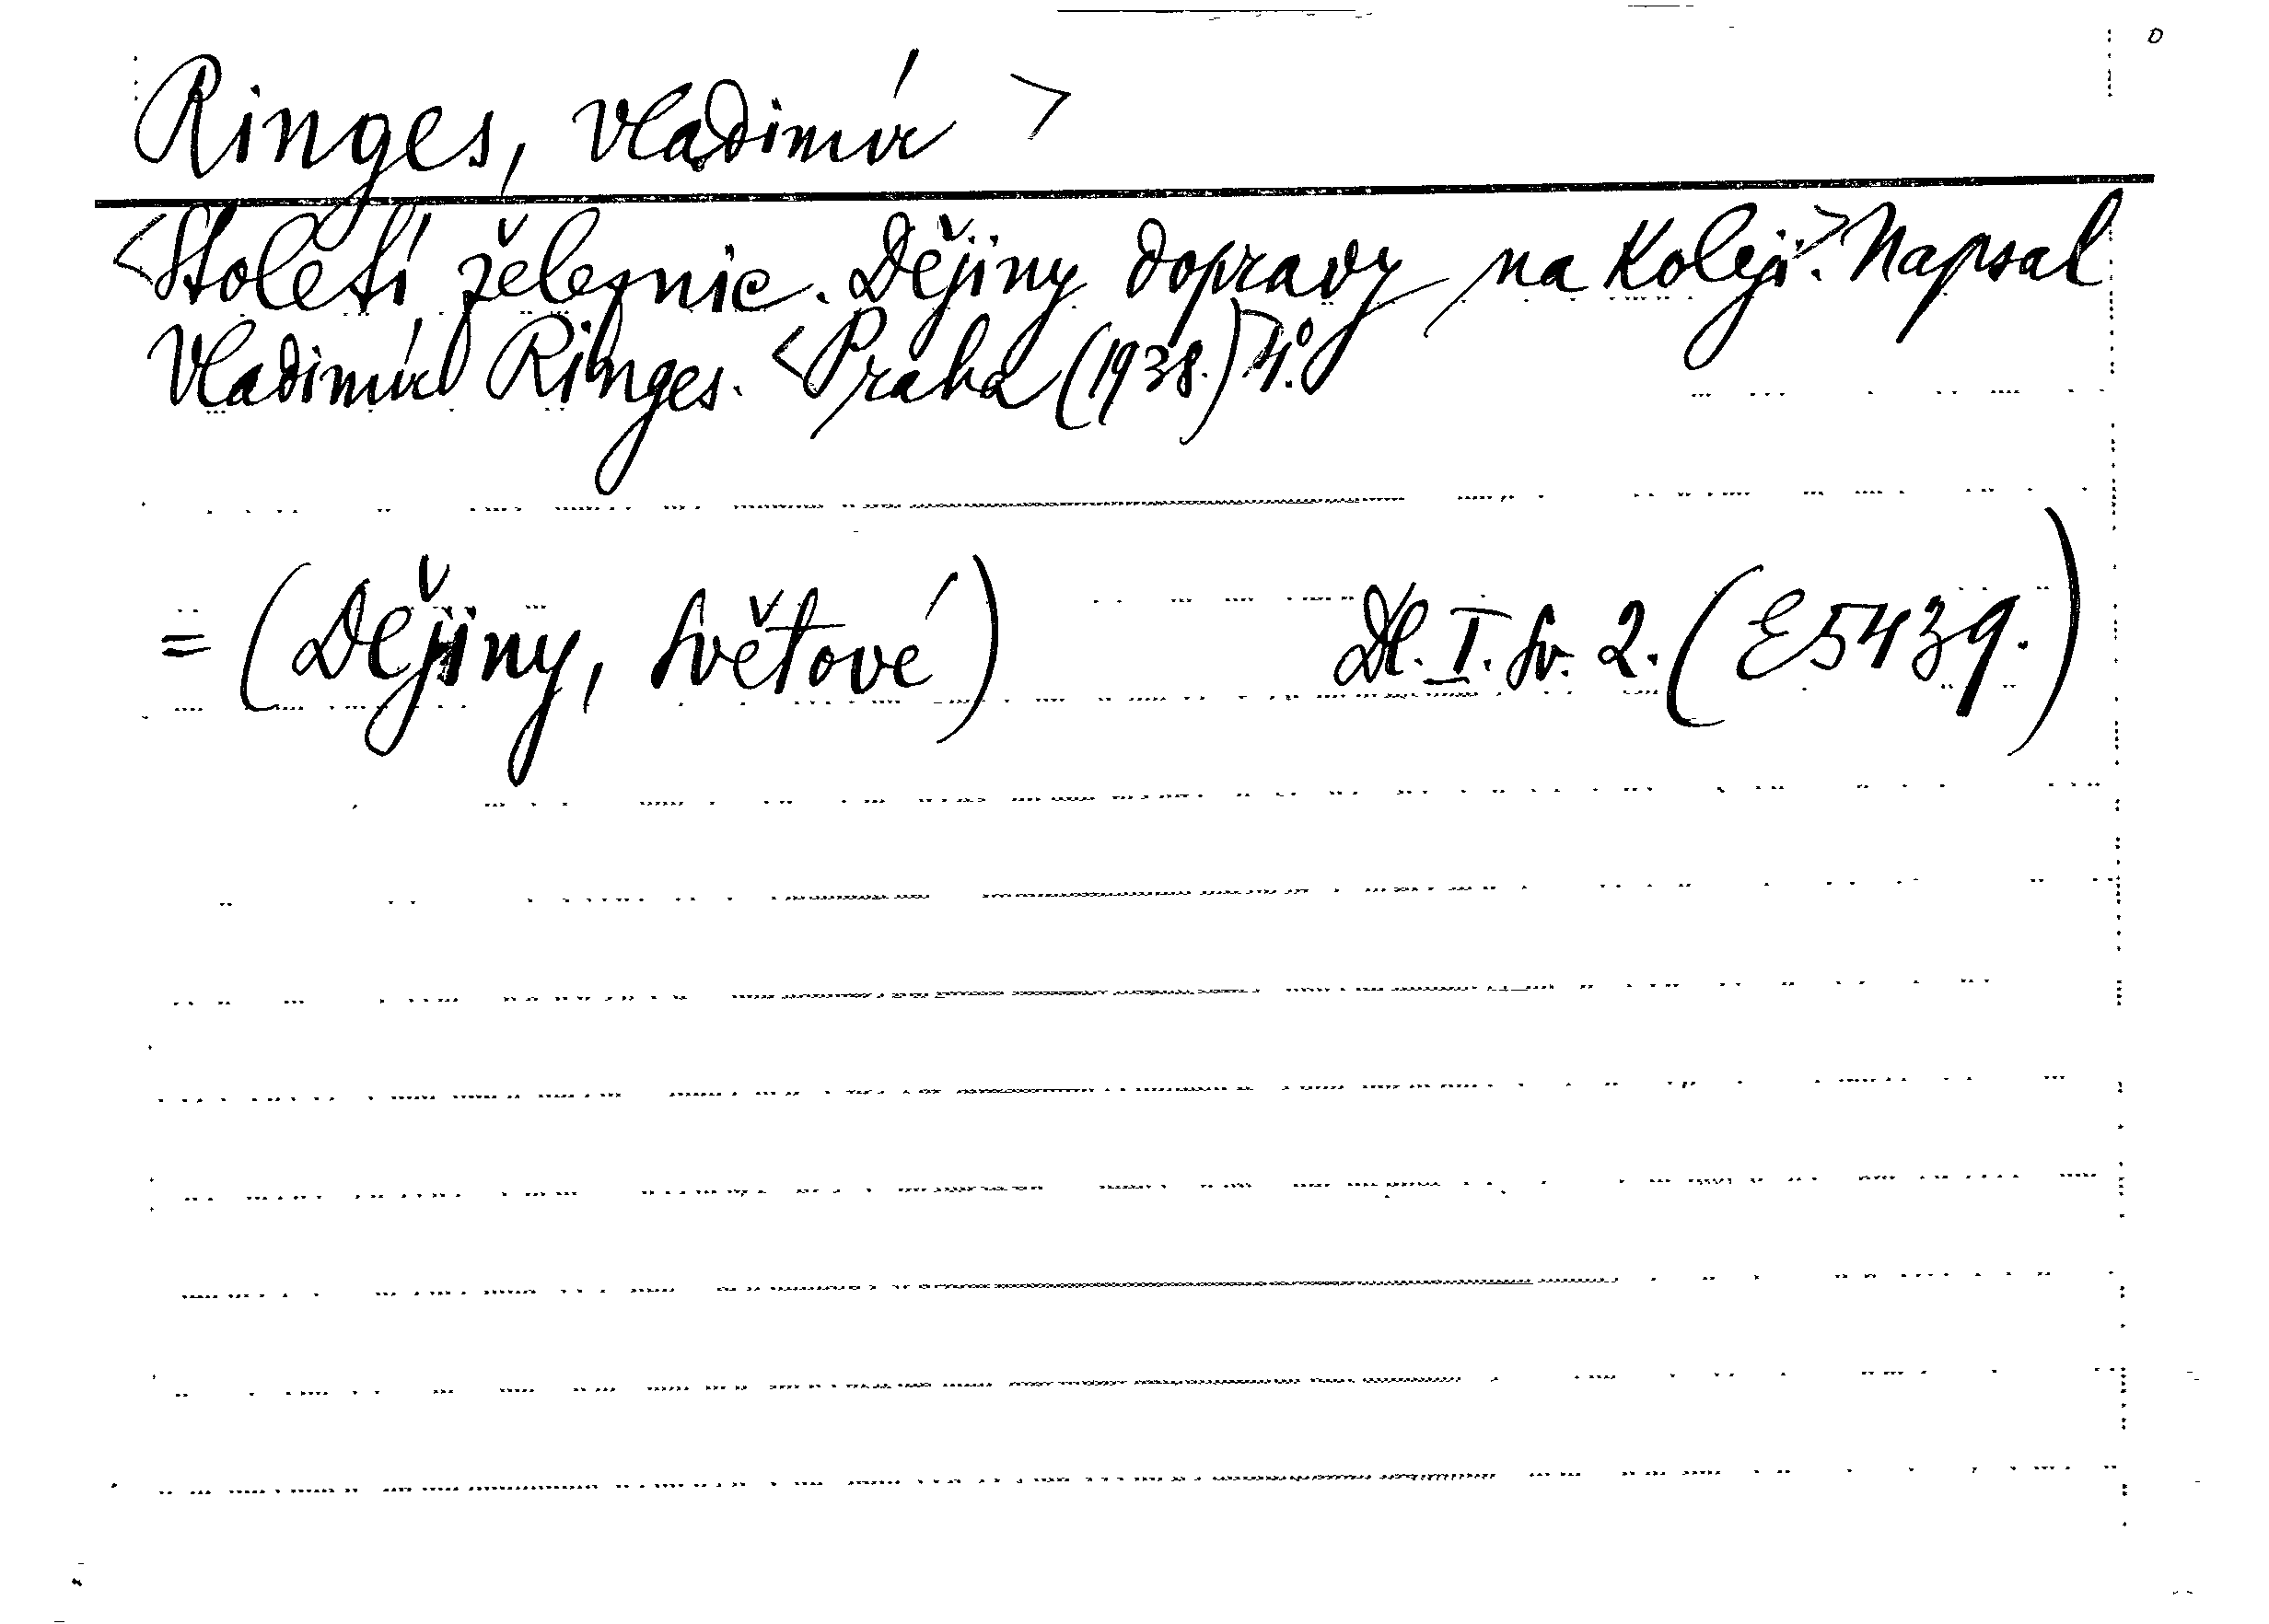 Ringes, Vladimír >
<Století železnic. Dějiny dopravy na koleji.> Napsal
Vladimír Ringes. <Praha (1938.)> 4.°
= (Dějiny, světové) Dl. I. sv. 2. (E5439.)